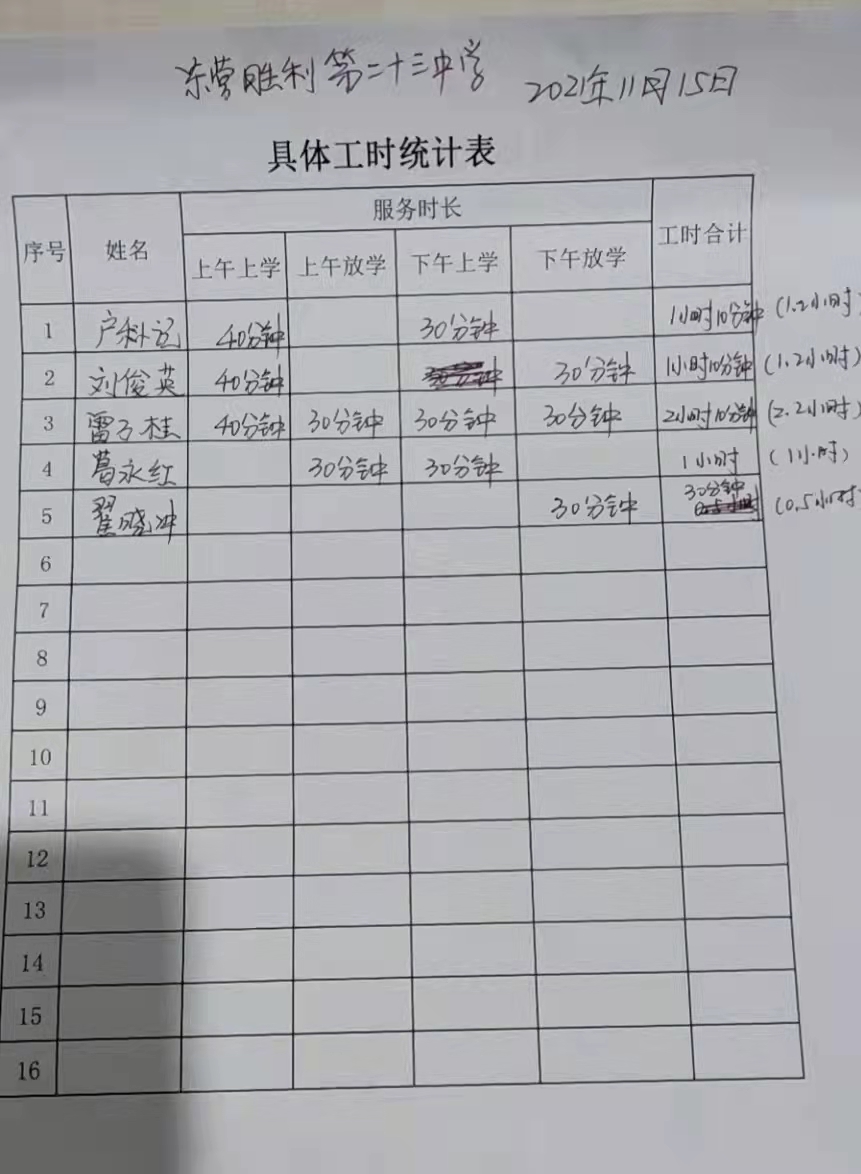 东营胜利第二十三中学 2021年11月15日
具体工时统计表
序号 姓名 服务时长 工时合计
上午上学 上午放学 下午上学 下午放学
1 户科记 40分钟 30分钟 1小时10分钟 (1.2小时)
2 刘俊英 40分钟 30分钟 1小时10分钟 (1.2小时)
3 雷子桂 40分钟 30分钟 30分钟 30分钟 2小时10分钟 (2.2小时)
4 葛永红 30分钟 30分钟 1小时 (1小时)
5 翟晓冲 30分钟 30分钟 (0.5小时)
6
7
8
9
10
11
12
13
14
15
16